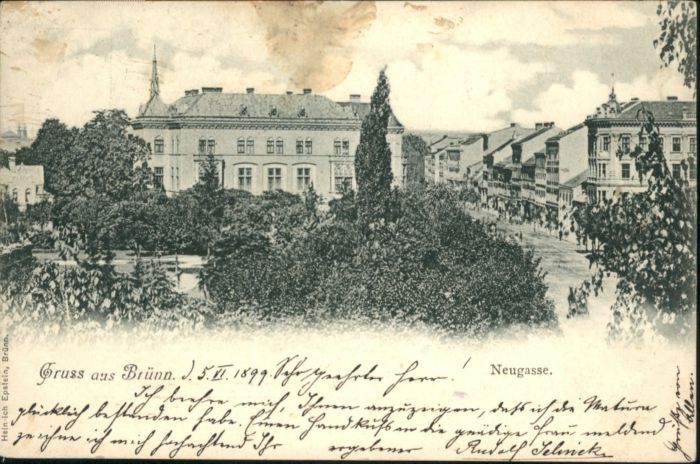 Gruss aus Brünn. d. 5. VI. 1899 Sehr geehrter Herr!
Neugasse.
Ich beehre mich Ihnen anzuzeigen, dass ich die Matura
glücklich bestanden habe. Einen Handkuss an die gnädige Frau meldend
zeichne ich mich hochachtend Ihr ergebener Rudolf Jelinek
Grüße von
Heinrich Epstein, Brünn.